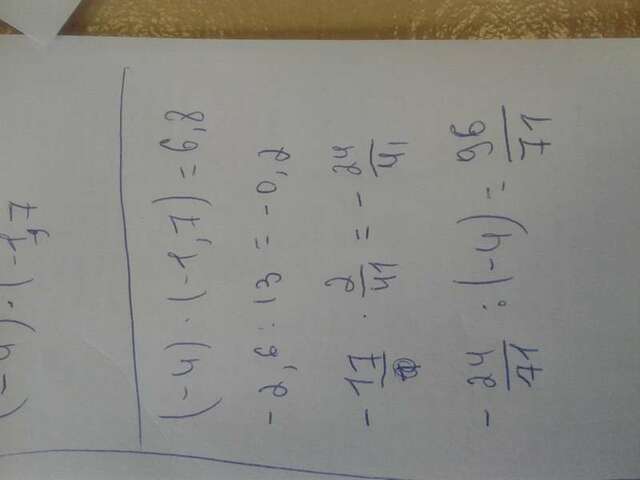 (-4) · (-1,7
(-4) · (-1,7) = 6,8
-2,6 : 13 = -0,2
- 17/ · 2/41 = - 24/41
- 24/71 : (-4) = 96/71